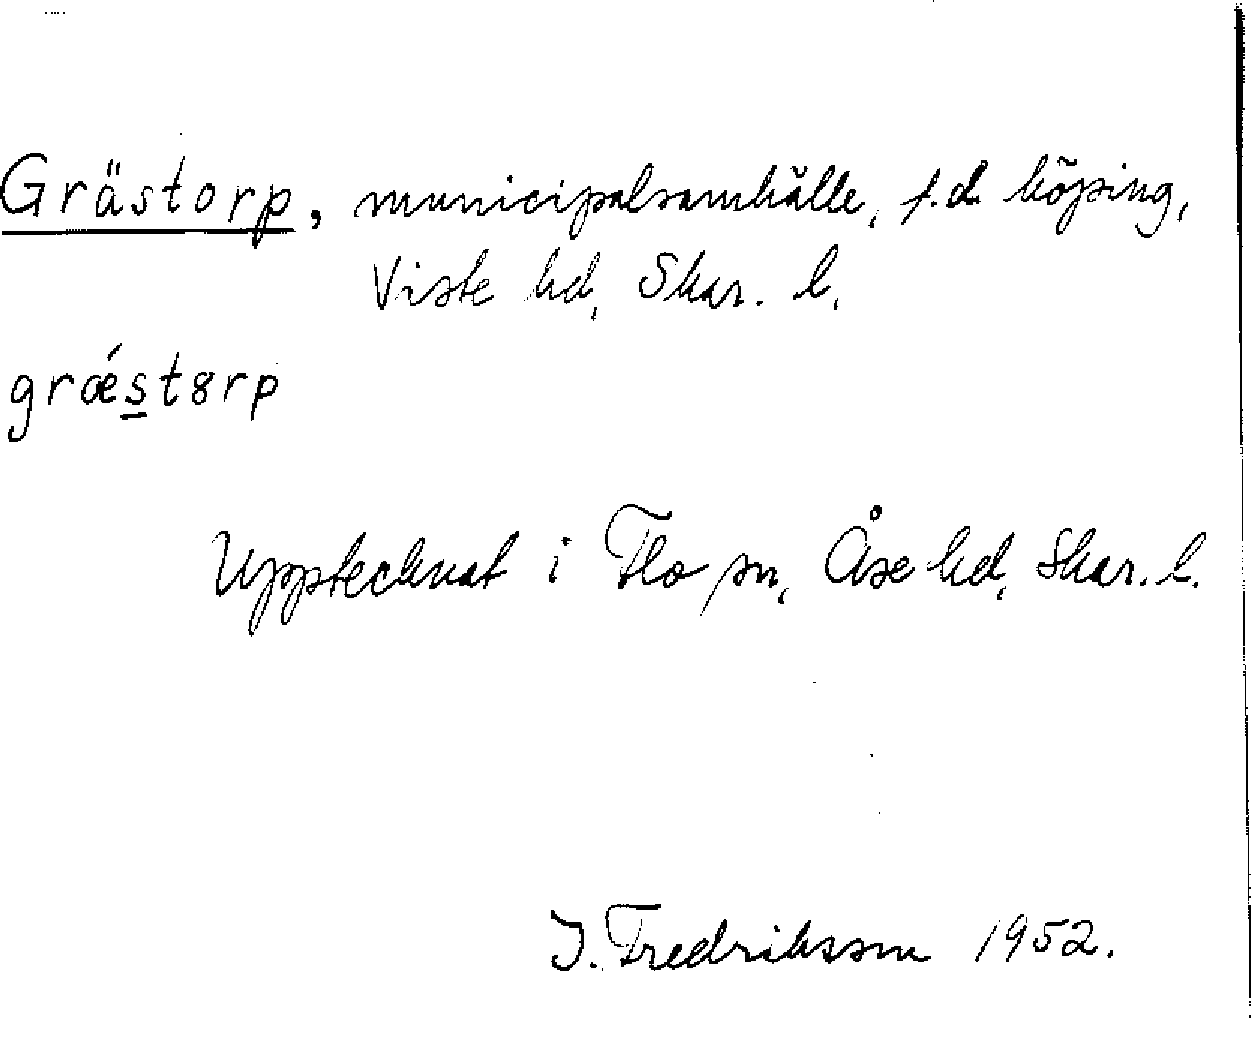 Grästorp, municipalsamhälle, f.d. köping,
Viste hd, Skar. l.
grǽst8rp
Upptecknat i Flo sn, Åse hd, Skar. l.
J. Fredriksson 1952.